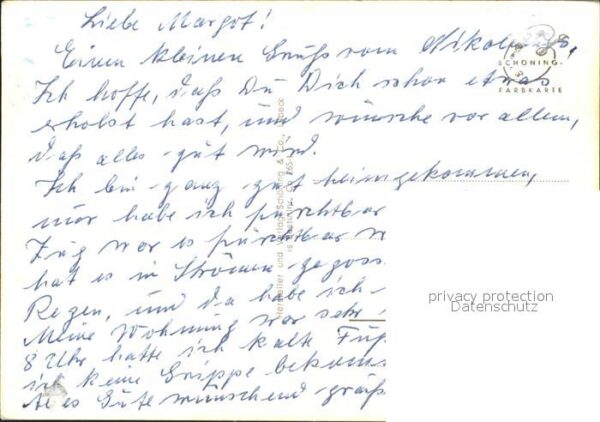 Liebe Margot!
Einen kleinen Gruß vom Nikolaus,
Ich hoffe, daß Du Dich schon etwas
erholst hast, und wünsche vor allem,
daß alles gut wird.
Ich bin ganz gut heimgekommen,
nur habe ich furchtbar
Zug war es furchtbar
hat es in Strömen gegoss
Regen, und da habe ich
Meine Wohnung war sehr
8 Uhr hatte ich kalte Füß
ich keine Grippe bekom
Alles Gute wünschend grüß
SCHÖNING-
FARBKARTE
Hersteller und Verlag Schöning & Co., Lübeck
privacy protection
Datenschutz